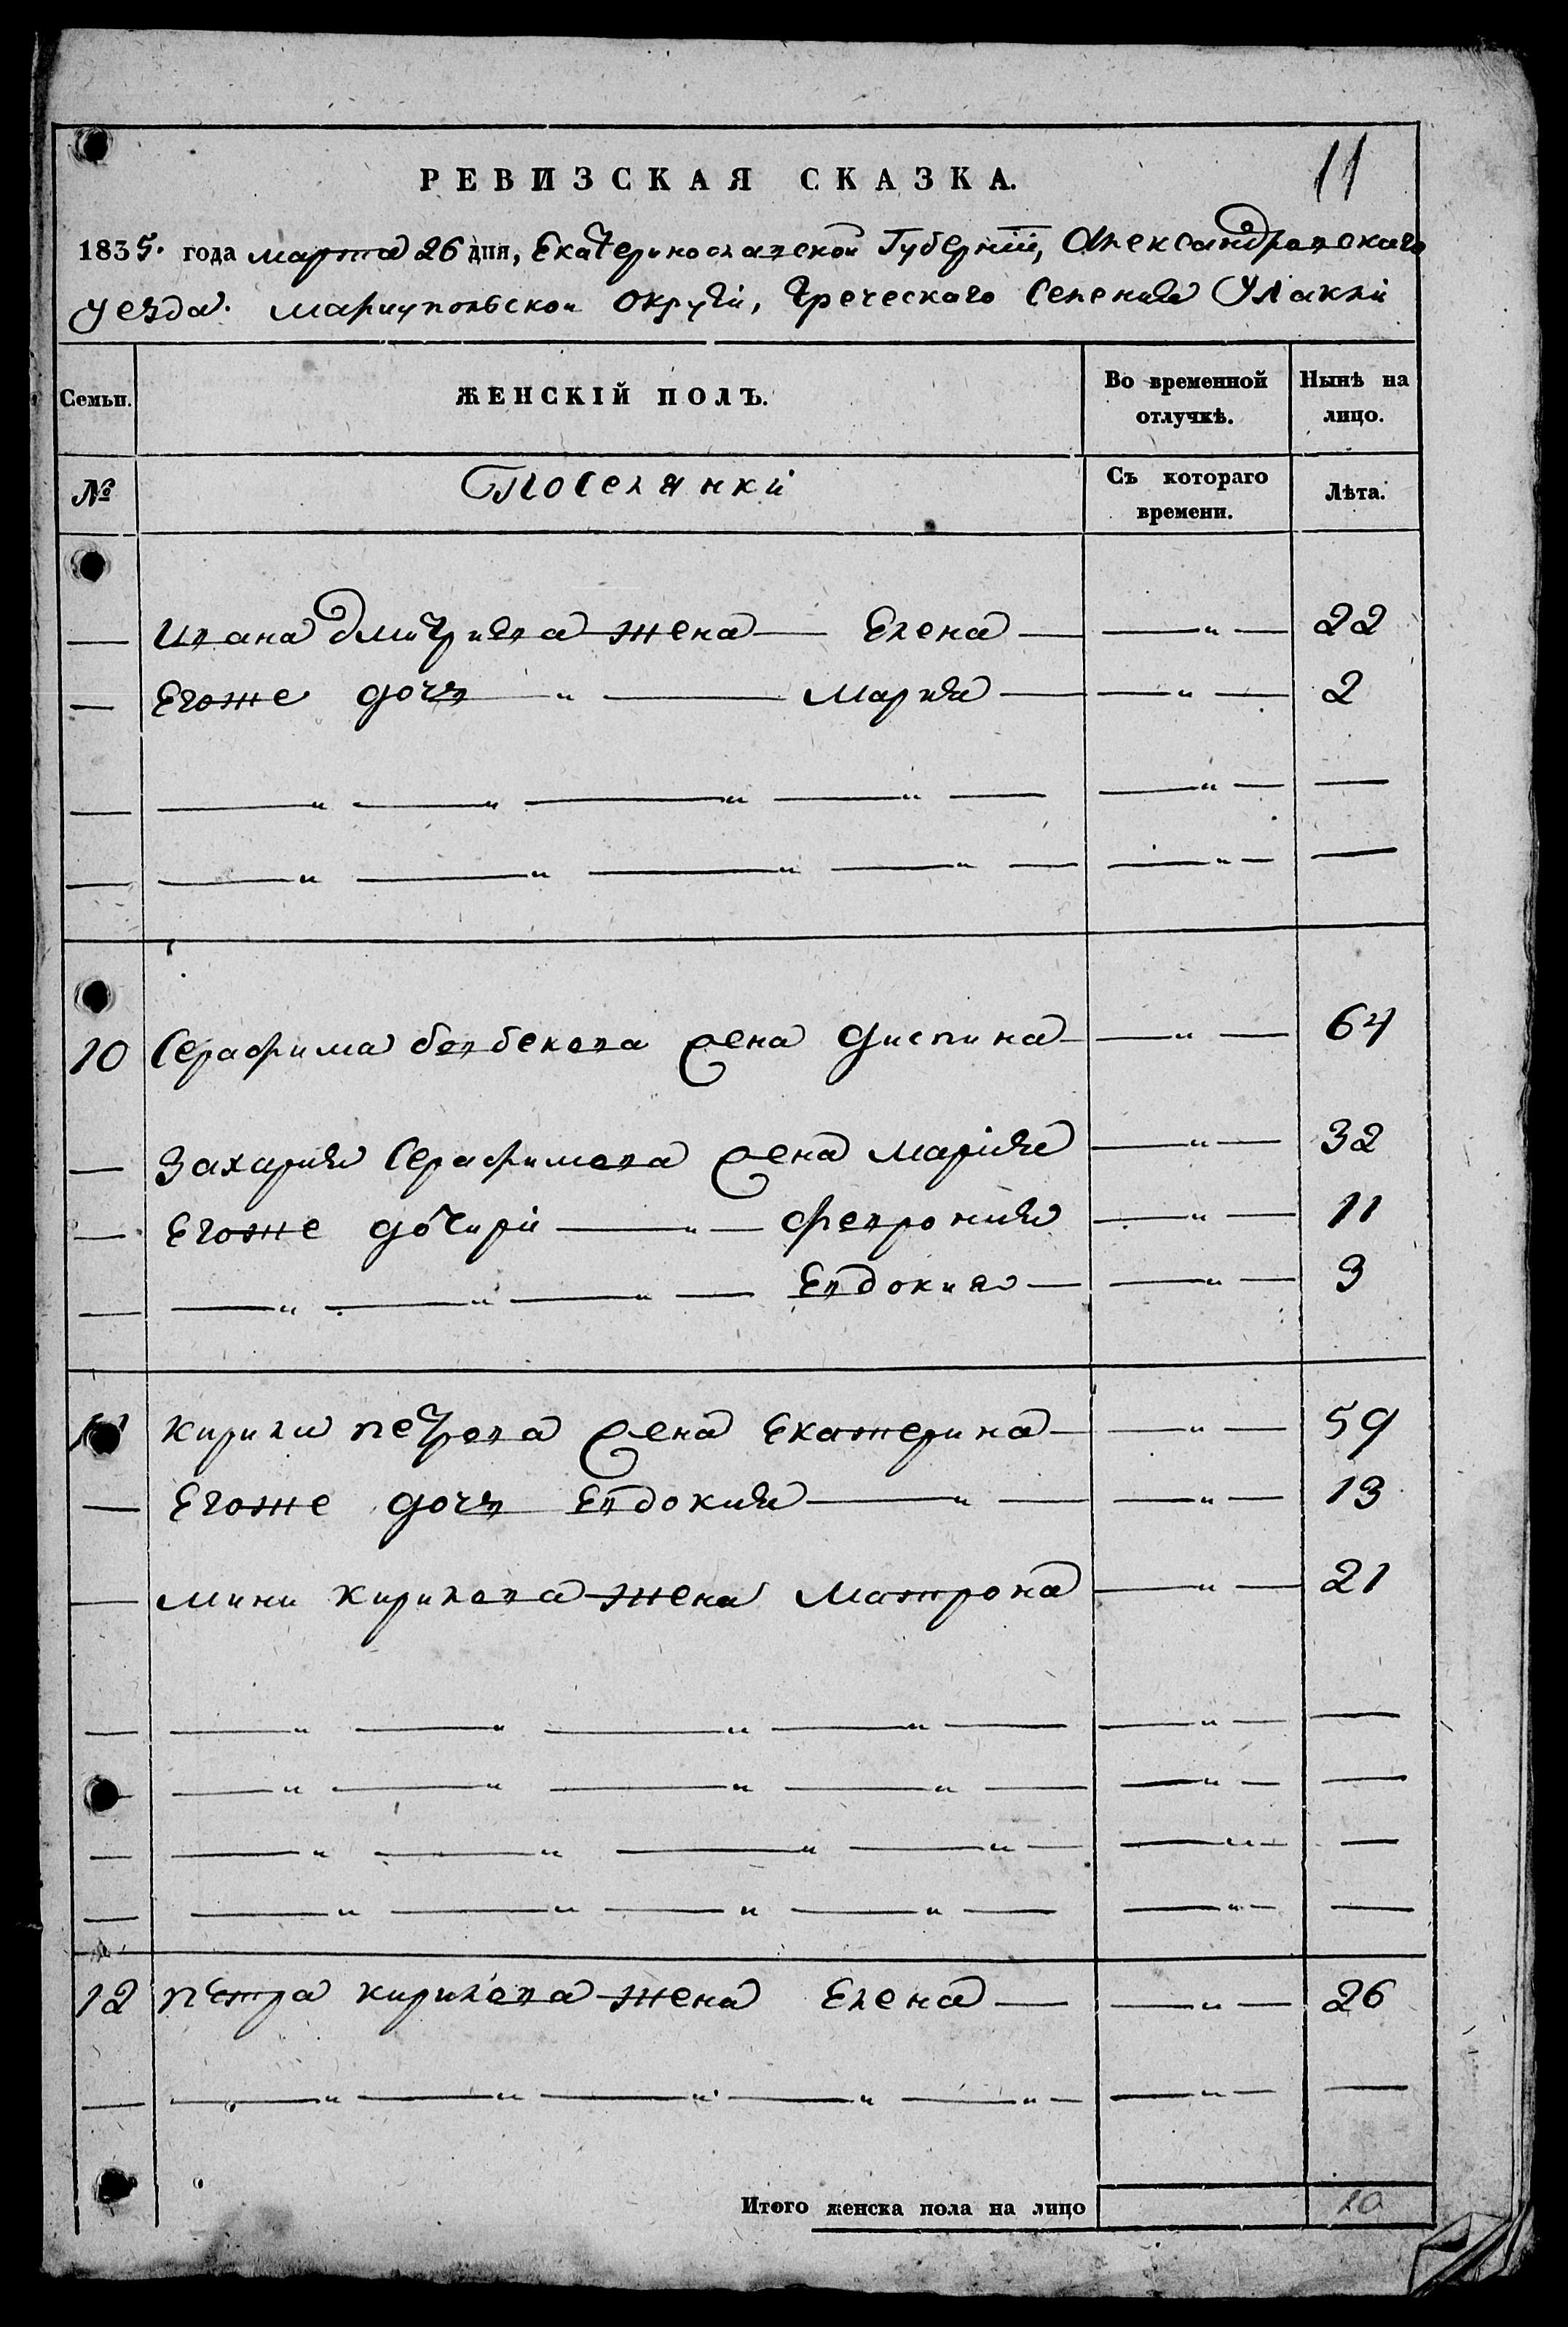 11
РЕВИЗСКАЯ СКАЗКА.
1835. года марта 26 дня, Екатеринославской Губернiи, Александровскаго
уезда. мариупольской округи, греческаго Селения Улаклы
Семьи. ЖЕНСКІЙ ПОЛЪ. Во временной отлучкѣ. Нынѣ на лицо.
№ Поселянки Съ котораго времени. Лѣта.
— Ивана дмитриева жена — Елена — — „ — 22
— Егоже дочь — „ — Мария — — „ — 2
10 Серафима бевбекова жена диспина — — „ — 64
— Захария Серафимова жена Марiя — „ — 32
— Егоже дочири — „ — феврония — „ — 11
— — „ — „ — „ — Евдокия — — „ — 3
11 Кирили петрова жена Екатерина — — „ — 59
— Егоже дочь Евдокия — „ — — „ — 13
— мини кирилова жена матрона — „ — 21
12 петра кирилова жена Елена — — „ — 26
Итого женска пола на лицо 10